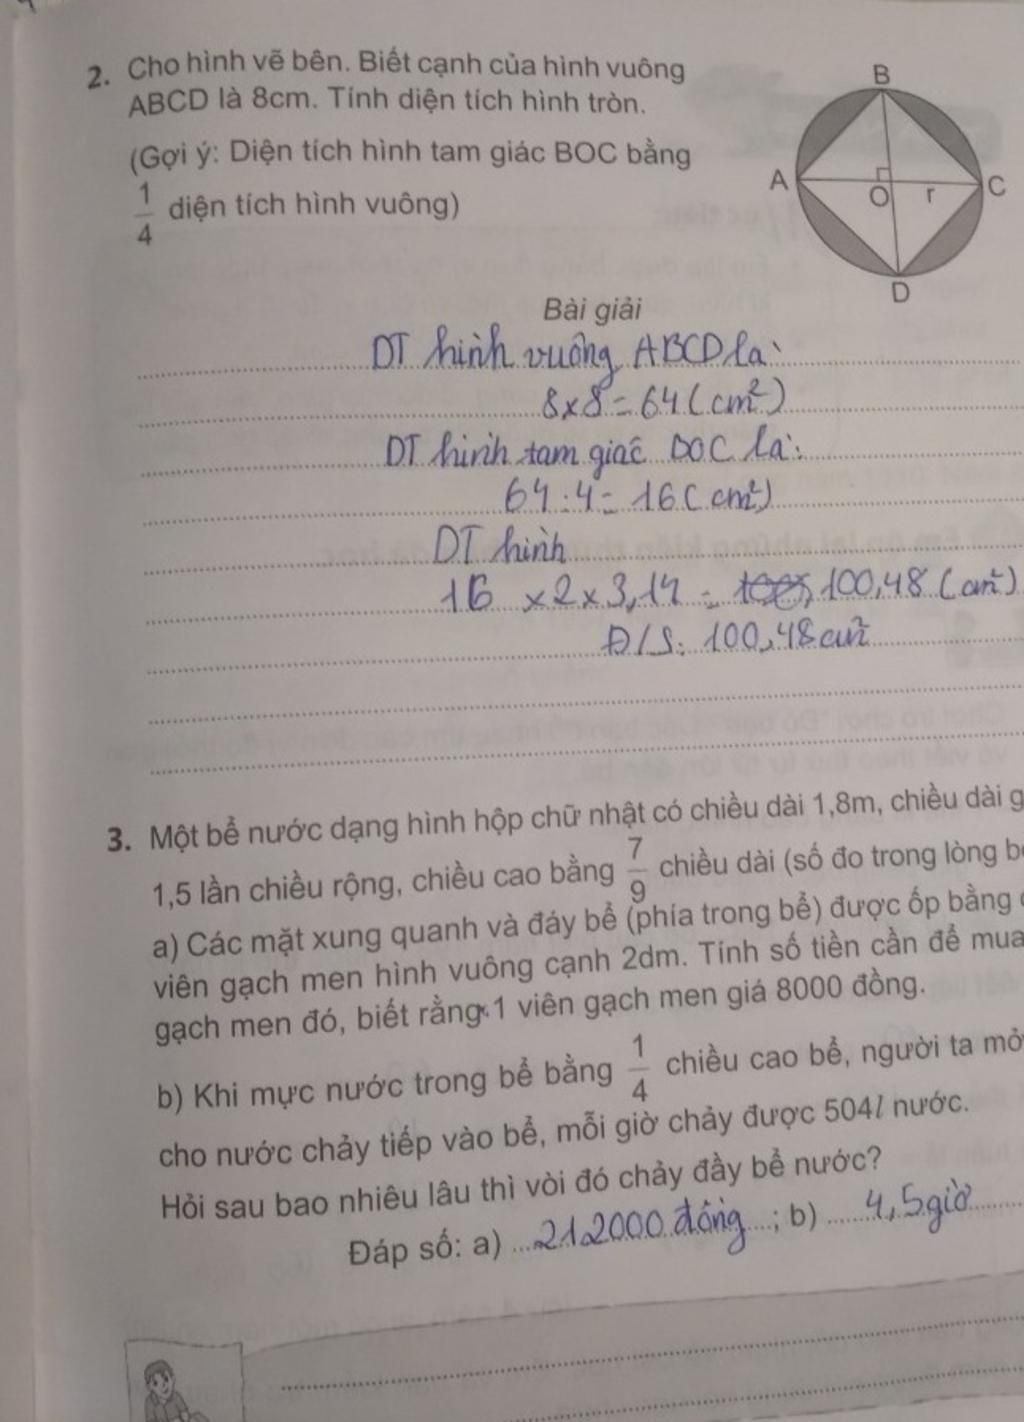 2. Cho hình vẽ bên. Biết cạnh của hình vuông
ABCD là 8cm. Tính diện tích hình tròn.
(Gợi ý: Diện tích hình tam giác BOC bằng
1/4 diện tích hình vuông)
B
A
O
r
C
D
Bài giải
DT hình vuông ABCD là:
8x8 = 64 (cm²)
DT hình tam giác BOC là:
64 : 4 = 16 (cm²)
DT hình
16 x 2 x 3,14 = 100,48 (cm²)
Đ/S: 100,48 cm²
3. Một bể nước dạng hình hộp chữ nhật có chiều dài 1,8m, chiều dài g
1,5 lần chiều rộng, chiều cao bằng 7/9 chiều dài (số đo trong lòng b
a) Các mặt xung quanh và đáy bể (phía trong bể) được ốp bằng
viên gạch men hình vuông cạnh 2dm. Tính số tiền cần để mua
gạch men đó, biết rằng 1 viên gạch men giá 8000 đồng.
b) Khi mực nước trong bể bằng 1/4 chiều cao bể, người ta mở
cho nước chảy tiếp vào bể, mỗi giờ chảy được 504l nước.
Hỏi sau bao nhiêu lâu thì vòi đó chảy đầy bể nước?
Đáp số: a) 212000 đồng ; b) 4,5 giờ